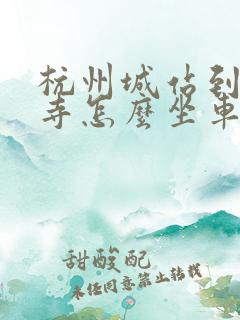 杭州城佔到
寺怎麼坐車
甜酸配
未任同意禁止转载